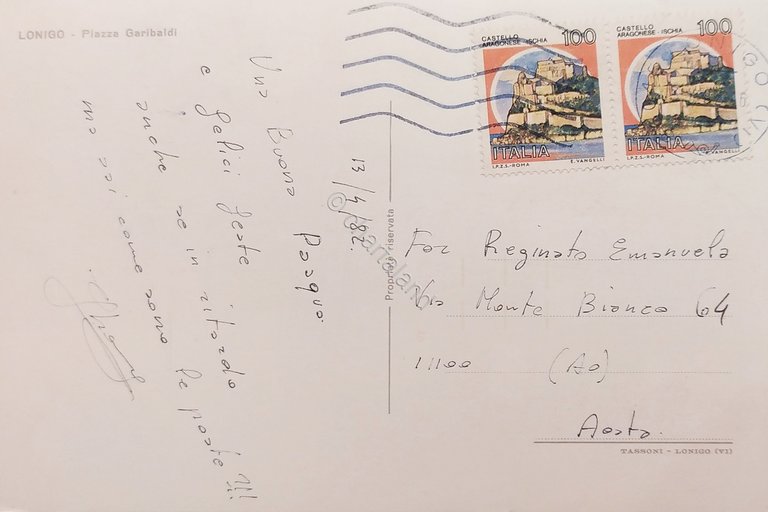 LONIGO - Piazza Garibaldi
CASTELLO
ARAGONESE - ISCHIA
100
ITALIA
I.P.Z.S. - ROMA
E. VANGELLI
CASTELLO
ARAGONESE - ISCHIA
100
ITALIA
I.P.Z.S. - ROMA
E. VANGELLI
13/4/82.
Una Buona Pasqua
e felici feste
anche se in ritardo
ma sai come sono le poste !!!
Proprietà riservata
© Cartolandia
Fam Reginato Emanuela
Via Monte Bianco 64
11100 (Ao)
Aosta.
TASSONI - LONIGO (VI)